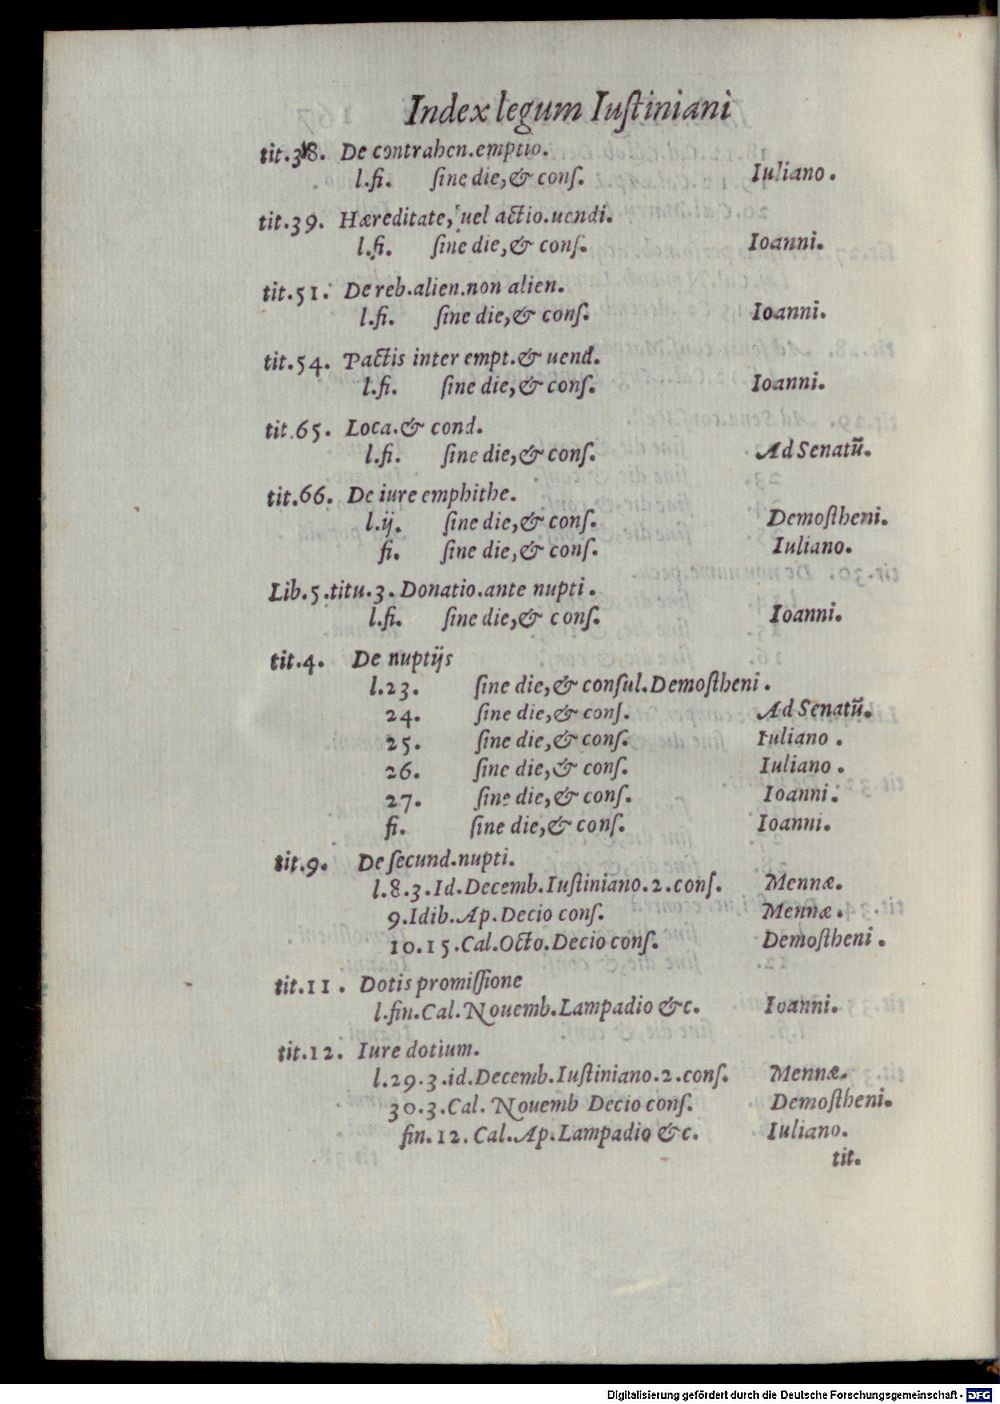 Index legum Iuſtiniani
tit.38. De contrahen.emptio.
l.fi. ſine die,& conſ. Iuliano.
tit.39. Hæreditate, uel actio.uendi.
l.fi. ſine die,& conſ. Ioanni.
tit.51. De reb.alien.non alien.
l.fi. ſine die,& conſ. Ioanni.
tit.54. Pactis inter empt.& uend.
l.fi. ſine die,& conſ. Ioanni.
tit.65. Loca.& cond.
l.fi. ſine die,& conſ. Ad Senatū.
tit.66. De iure emphithe.
l.ij. ſine die,& conſ. Demoſtheni.
fi. ſine die,& conſ. Iuliano.
Lib.5.titu.3.Donatio.ante nupti.
l.fi. ſine die,& conſ. Ioanni.
tit.4. De nuptijs
l.23. ſine die,& conſul.Demoſtheni.
24. ſine die,& conſ. Ad Senatū.
25. ſine die,& conſ. Iuliano.
26. ſine die,& conſ. Iuliano.
27. ſine die,& conſ. Ioanni.
fi. ſine die,& conſ. Ioanni.
tit.9. De ſecund.nupti.
l.8.3.Id.Decemb.Iuſtiniano.2.conſ. Mennæ.
9.Idib.Ap.Decio conſ. Mennæ.
10.15.Cal.Octo.Decio conſ. Demoſtheni.
tit.11. Dotis promiſſione
l.fin.Cal.Nouemb.Lampadio &c. Ioanni.
tit.12. Iure dotium.
l.29.3.id.Decemb.Iuſtiniano.2.conſ. Mennæ.
30.3.Cal. Nouemb Decio conſ. Demoſtheni.
fin.12.Cal.Ap.Lampadio &c. Iuliano.
tit.
Digitalisierung gefördert durch die Deutsche Forschungsgemeinschaft - DFG